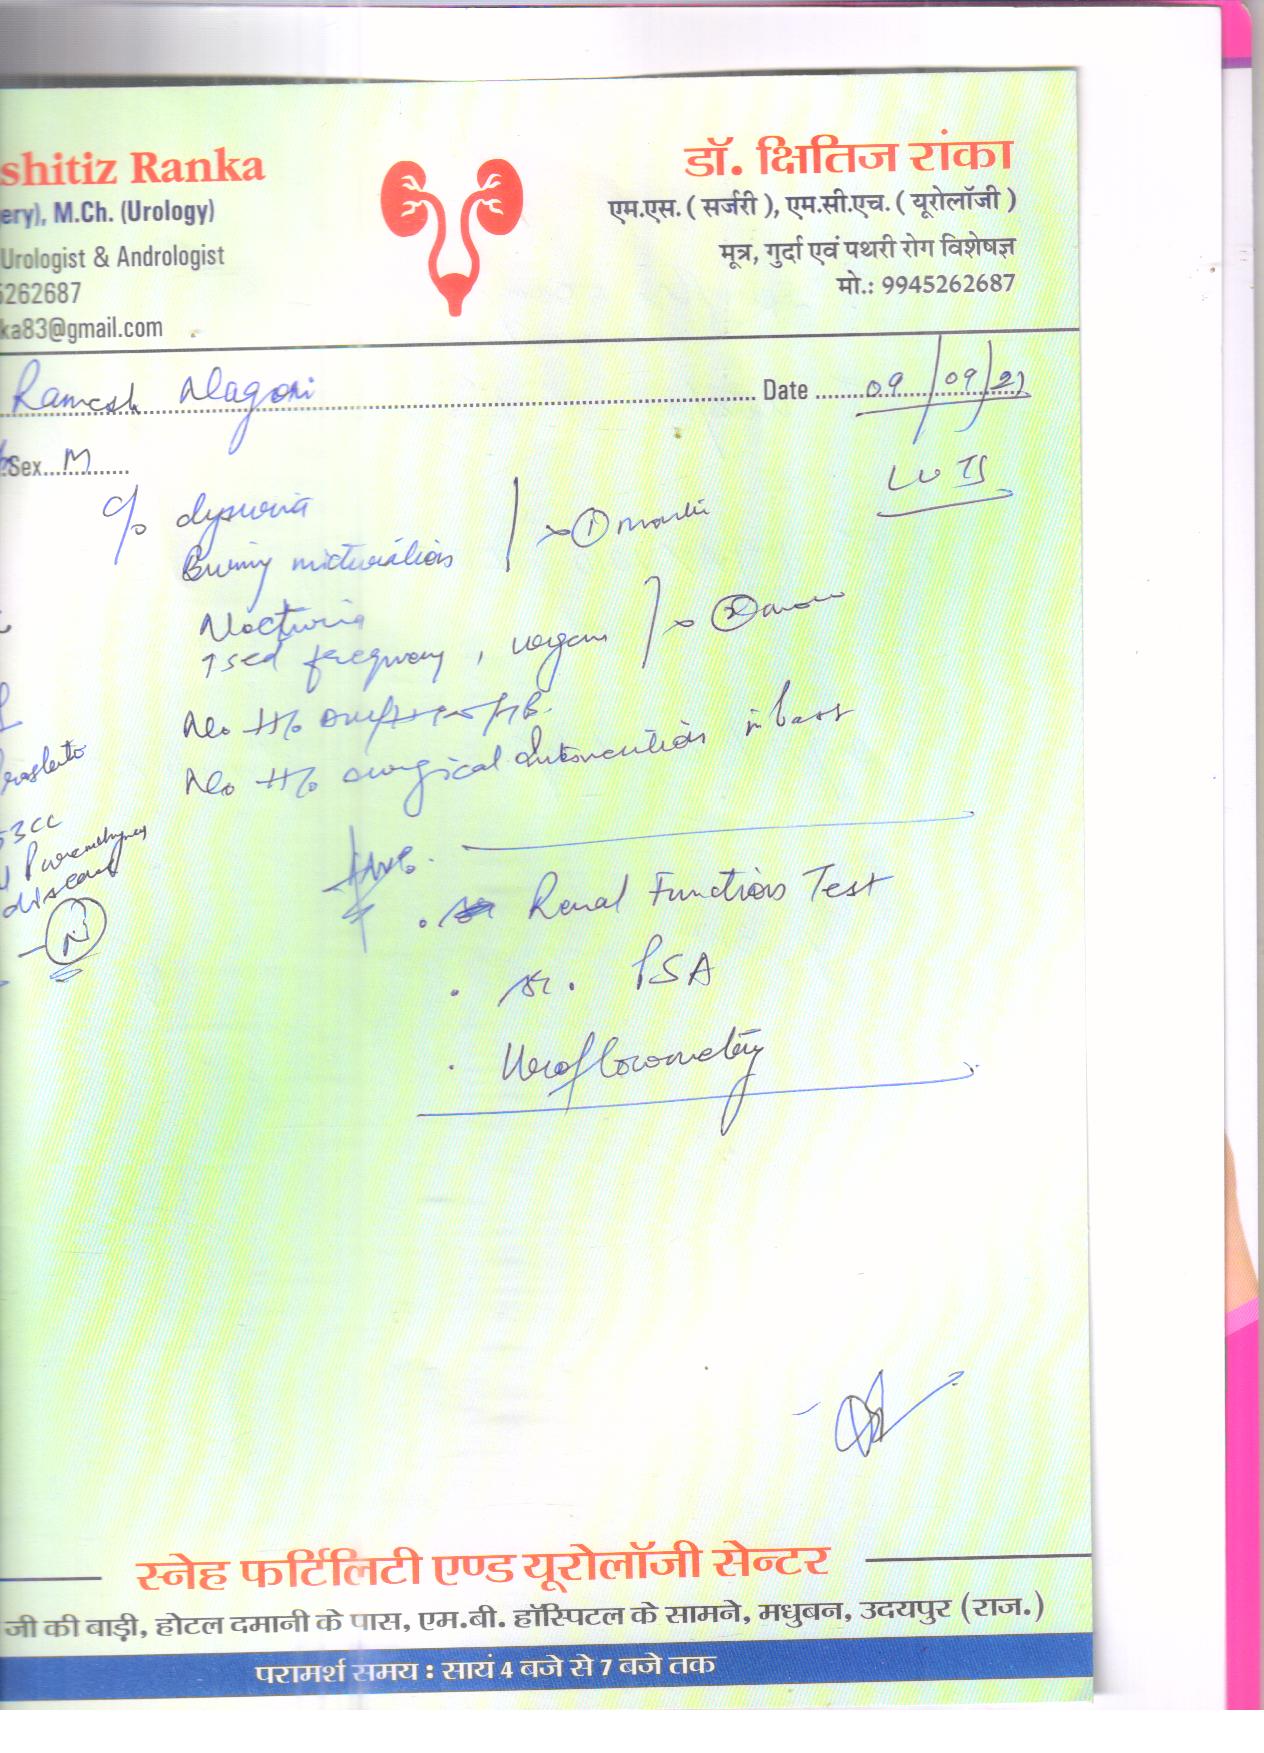 shitiz Ranka
डॉ. क्षितिज रांका
ery), M.Ch. (Urology)
एम.एस. ( सर्जरी ), एम.सी.एच. ( यूरोलॉजी )
Urologist & Andrologist
मूत्र, गुर्दा एवं पथरी रोग विशेषज्ञ
5262687
मो.: 9945262687
ka83@gmail.com
Ramesh Nagori Date 09/09/21
Sex M
LUTS
c/o dysuria
Burning micturition
x 1 month
Nocturia
↑sed frequency, urgency x 2
No H/o
No H/o surgical intervention in past
53cc
Inv.
Renal Function Test
Sr. PSA
Uroflowmetry
स्नेह फर्टिलिटी एण्ड यूरोलॉजी सेन्टर
जी की बाड़ी, होटल दमानी के पास, एम.बी. हॉस्पिटल के सामने, मधुबन, उदयपुर (राज.)
परामर्श समय : सायं 4 बजे से 7 बजे तक